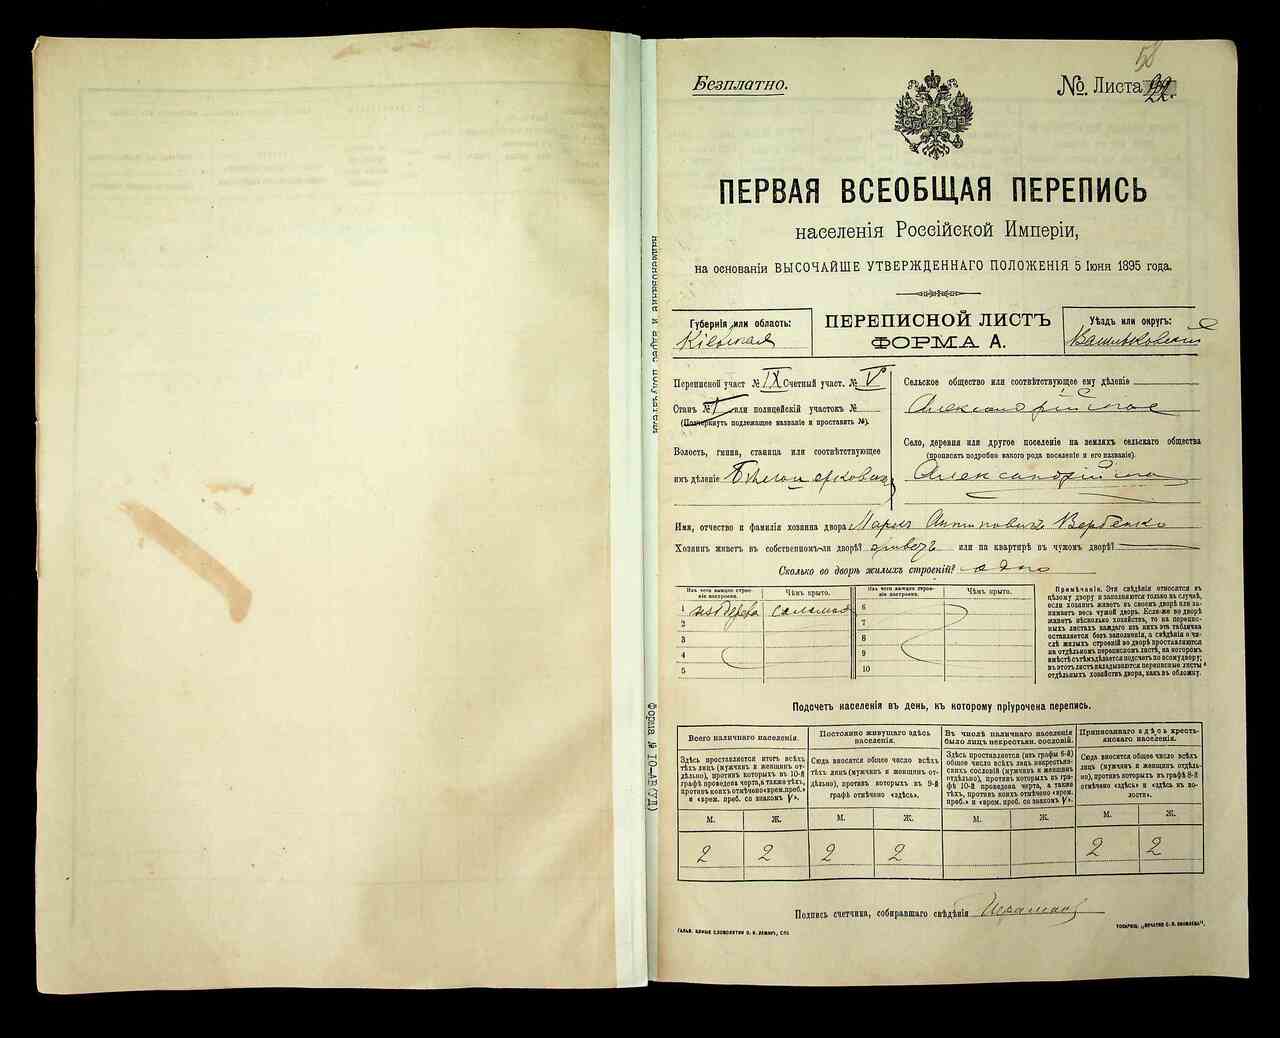 58
Безплатно.
№. Листа 22.
ПЕРВАЯ ВСЕОБЩАЯ ПЕРЕПИСЬ
населенія Россійской Имперіи,
на основаніи ВЫСОЧАЙШЕ УТВЕРЖДЕННАГО ПОЛОЖЕНІЯ 5 Іюня 1895 года.
Губернія или область:
Кіевская
ПЕРЕПИСНОЙ ЛИСТЪ
ФОРМА А.
Уѣздъ или округъ:
Васильковскій
Переписной участ. № IX Счетный участ. № V
Станъ № I или полицейскій участокъ №
(Подчеркнуть подлежащее названіе и проставить №).
Волость, гмина, станица или соотвѣтствующее
имъ дѣленіе Бѣлоцерковская
Сельское общество или соотвѣтствующее ему дѣленіе
Александрійское
Село, деревня или другое поселеніе на земляхъ сельскаго общества
(прописать подробно какого рода поселеніе и его названіе).
Александрійская
Имя, отчество и фамилія хозяина двора Марко Антиповичъ Вербенко
Хозяинъ живетъ въ собственномъ-ли дворѣ? живетъ или на квартирѣ въ чужомъ дворѣ?
Сколько во дворѣ жилыхъ строеній? одно
Изъ чего жилыя строенія построены.
Чѣмъ крыто.
Изъ чего жилыя строенія построены.
Чѣмъ крыто.
1 изъ дерева соломою 6
2 7
3 8
4 9
5 10
Примѣчаніе. Эти свѣдѣнія относятся къ
цѣлому двору и заполняются только на случай,
если хозяинъ живетъ въ своемъ дворѣ или за-
нимаетъ весь чужой дворъ. Если-же во дворѣ
живетъ нѣсколько хозяйствъ, то на перепис-
ныхъ листахъ каждаго изъ нихъ эта табличка
оставляется безъ заполненія, а свѣдѣнія о чи-
слѣ жилыхъ строеній во дворѣ проставляются
на отдѣльномъ переписномъ листѣ, на которомъ
вмѣстѣ съ тѣмъ дѣлается подсчетъ по всему двору;
въ этотъ листъ вкладываются переписные листы
отдѣльныхъ хозяйствъ двора, какъ въ обложку.
Подсчетъ населенія въ день, къ которому пріурочена перепись.
Всего наличнаго населенія.
Здѣсь проставляется итогъ всѣхъ
тѣхъ лицъ (мужчинъ и женщинъ от-
дѣльно), противъ которыхъ въ 10-й
графѣ проведена черта, а также тѣхъ,
противъ коихъ отмѣчено «врем. преб.»
и «врем. преб. со знакомъ V».
Постоянно живущаго здѣсь
населенія.
Сюда вносится общее число всѣхъ
тѣхъ лицъ (мужчинъ и женщинъ от-
дѣльно), противъ которыхъ въ 9-й
графѣ отмѣчено «здѣсь».
Въ числѣ наличнаго населенія
было лицъ некрестьян. сословій.
Здѣсь проставляется (изъ графы 6-й)
общее число всѣхъ лицъ некрестьян-
скихъ сословій (мужчинъ и женщинъ
отдѣльно), противъ которыхъ въ гра-
фѣ 10-й проведена черта, а также
тѣхъ, противъ коихъ отмѣчено «врем.
преб.» и «врем. преб. со знакомъ V».
Приписаннаго здѣсь кресть-
янскаго населенія.
Сюда вносится общее число всѣхъ
лицъ (мужчинъ и женщинъ отдѣль-
но), противъ которыхъ въ графѣ 8-й
отмѣчено «здѣсь» и «здѣсь въ во-
лости».
М. Ж. М. Ж. М. Ж. М. Ж.
2 2 2 2 2 2
Подпись счетчика, собиравшаго свѣдѣнія